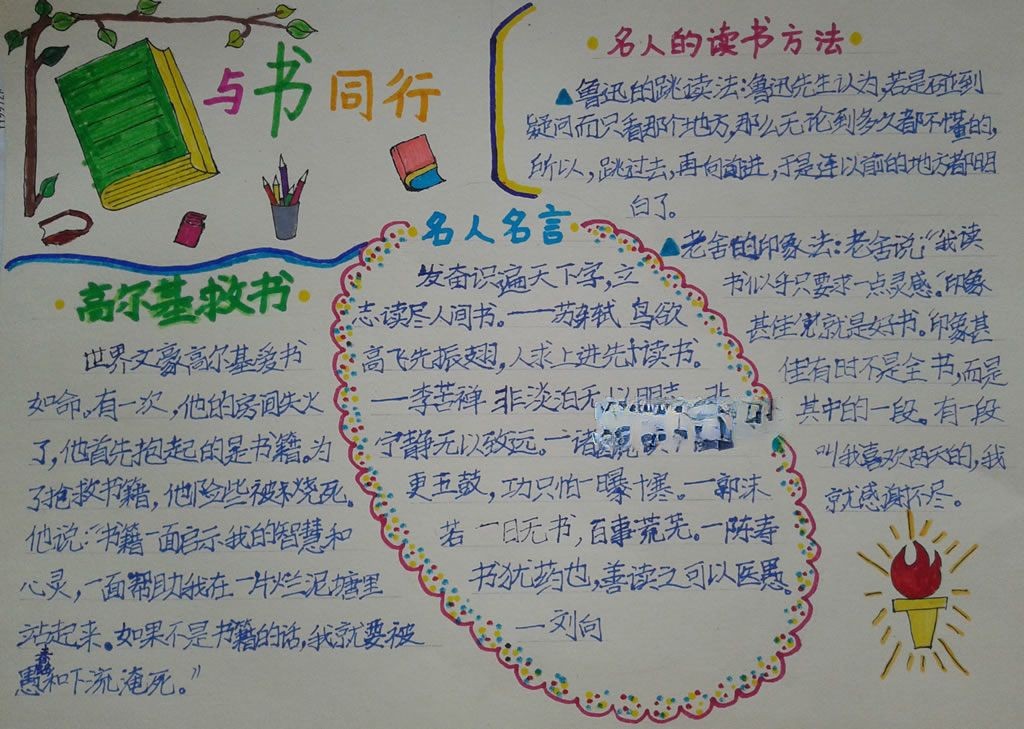 与书同行
名人的读书方法
▲鲁迅的跳读法：鲁迅先生认为，若是碰到
疑问而只看那个地方，那么无论到多久都不懂的，
所以，跳过去，再向前进，于是连以前的地方都明
白了。
▲老舍的印象法：老舍说：“我读
书似乎只要求一点灵感。印象
甚佳便就是好书。印象甚
佳有时不是全书，而是
其中的一段。有一段
叫我喜欢两天的，我
就感谢不尽。
高尔基救书
世界文豪高尔基爱书
如命。有一次，他的房间失火
了，他首先抱起的是书籍。为
了抢救书籍，他险些被烧死。
他说：“书籍一面启示我的智慧和
心灵，一面帮助我在一片烂泥塘里
站起来。如果不是书籍的话，我就要被
愚蠢和下流淹死。”
名人名言
发奋识遍天下字，立
志读尽人间书。——苏轼 鸟欲
高飞先振翅，人求上进先读书。
——李苦禅 非淡泊无以明 非
宁静无以致远。—诸 读
更五鼓，功只怕一曝十寒。—郭沫
若 一日无书，百事荒芜。—陈寿
书犹药也，善读之可以医愚。
—刘向